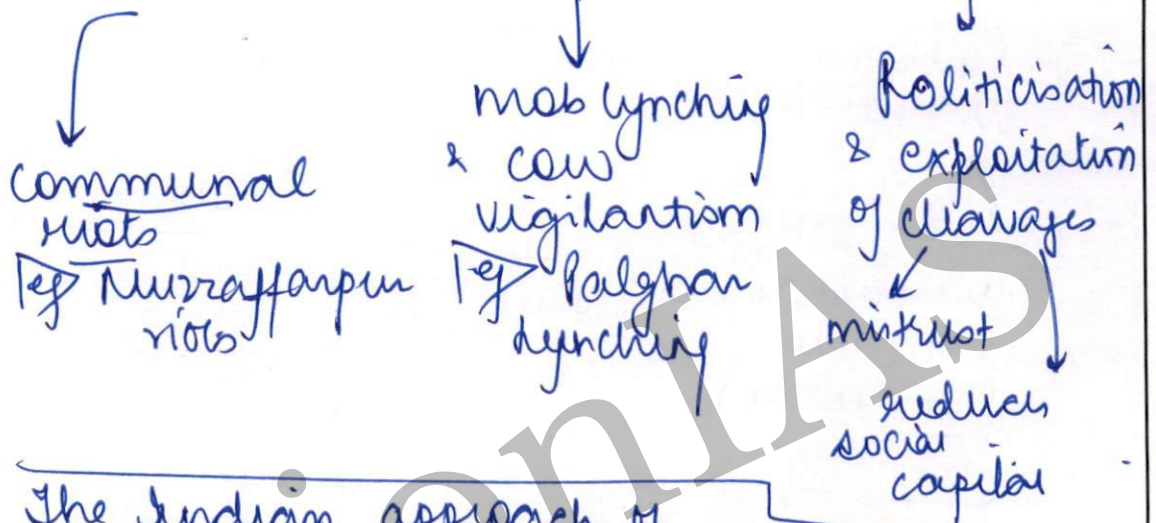 communal
riots
eg Muzzaffarpur
riots
mob lynching
& cow
vigilantism
eg Palghar
Lynching
Politicisation
& exploitation
of cleavages
mistrust
reduces
social
capital
The Indian approach of
onIAS